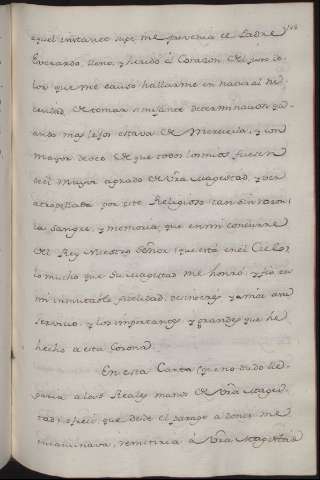 aquel instante supe, me prevenia el Padre
Everardo, lleno, y herido el Corazon del justo do
lor que me causò hallarme en nacesidad, ne
cesidad, de tomar semejante determinacion qu
ando mas lejos estava de Merecerla, y con
mayor deseo de que todos los mios fuesen
del mayor agrado de Vra Magestad, y ver
atropellada por este Religioso (tan sin razon)
la sangre, y memoria que en mi concurre
del Rey Nuestro Señor (que està en el Cielo)
lo mucho que Su Magestad me honrò, y fiò en
mi inmutable fidelidad, de noches y a mia a su
servicio, y los importantes y grandes que he
hecho a esta Corona.
En esta Carta (que no dudo lle-
garia a las Reales manos de Vra Mages-
tad) ofrecì que desde el parage a donde me
encaminava, remitiria à Vra Magestad